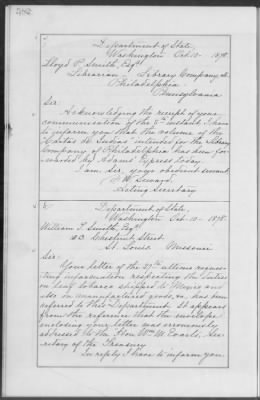 Department of State,
Washington Oct. 10 - 1878.
Lloyd P. Smith, Esqr.
Librarian - Library Company &c.
Philadelphia -
Pennsylvania
Sir:
Acknowledging the receipt of your
communication of the 8th instant, I have
to inform you that the volume of the
Cartas de Indias intended for the Library
Company of Philadelphia has been for-
warded by Adams' Express today.
I am Sir, your obedient servant,
F. W. Seward,
Acting Secretary
Department of State,
Washington, Oct. 10 - 1878 -
William T. Smith, Esqr.
103 Chestnut Street
St. Louis Missouri
Sir:
Your letter of the 27th ultimo reques-
ting information respecting the duties
on leaf tobacco shipped to Mexico and
also on manufactured goods, &c. has been
referred to this Department. It appears
from the reference that the envelope
enclosing your letter was erroneously
addressed to the Hon. Wm. M. Evarts, Sec-
retary of the Treasury.
In reply I have to inform you